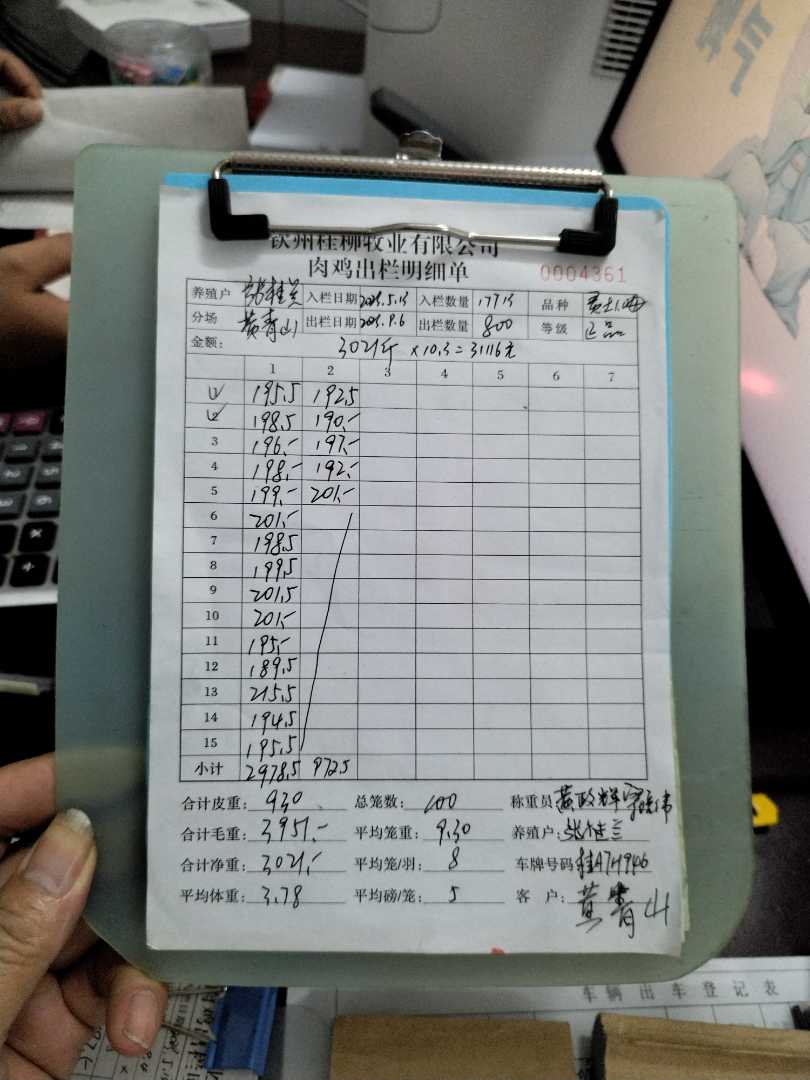 钦州桂柳牧业有限公司
肉鸡出栏明细单 0004361
养殖户 张桂兰 入栏日期 5.13 入栏数量 品种
分场 黄青山 出栏日期 9.6 出栏数量 800 等级 正品
金额: 3021斤 ×10.3=31116元
1 2 3 4 5 6 7
1 195.5 192.5
2 198.5 190.-
3 196.- 197.-
4 198.- 192.-
5 199.- 201.-
6 201.-
7 198.5
8 199.5
9 201.5
10 201.-
11 195.-
12 189.5
13 215.5
14 194.5
15 195.5
小计 2978.5 972.5
合计皮重: 930 总笼数: 100 称重员
合计毛重: 3951.- 平均笼重: 9.30 养殖户: 张桂兰
合计净重: 3021.- 平均笼/羽: 8 车牌号码
平均体重: 3.78 平均磅/笼: 5 客户: 黄青山
车辆出车登记表